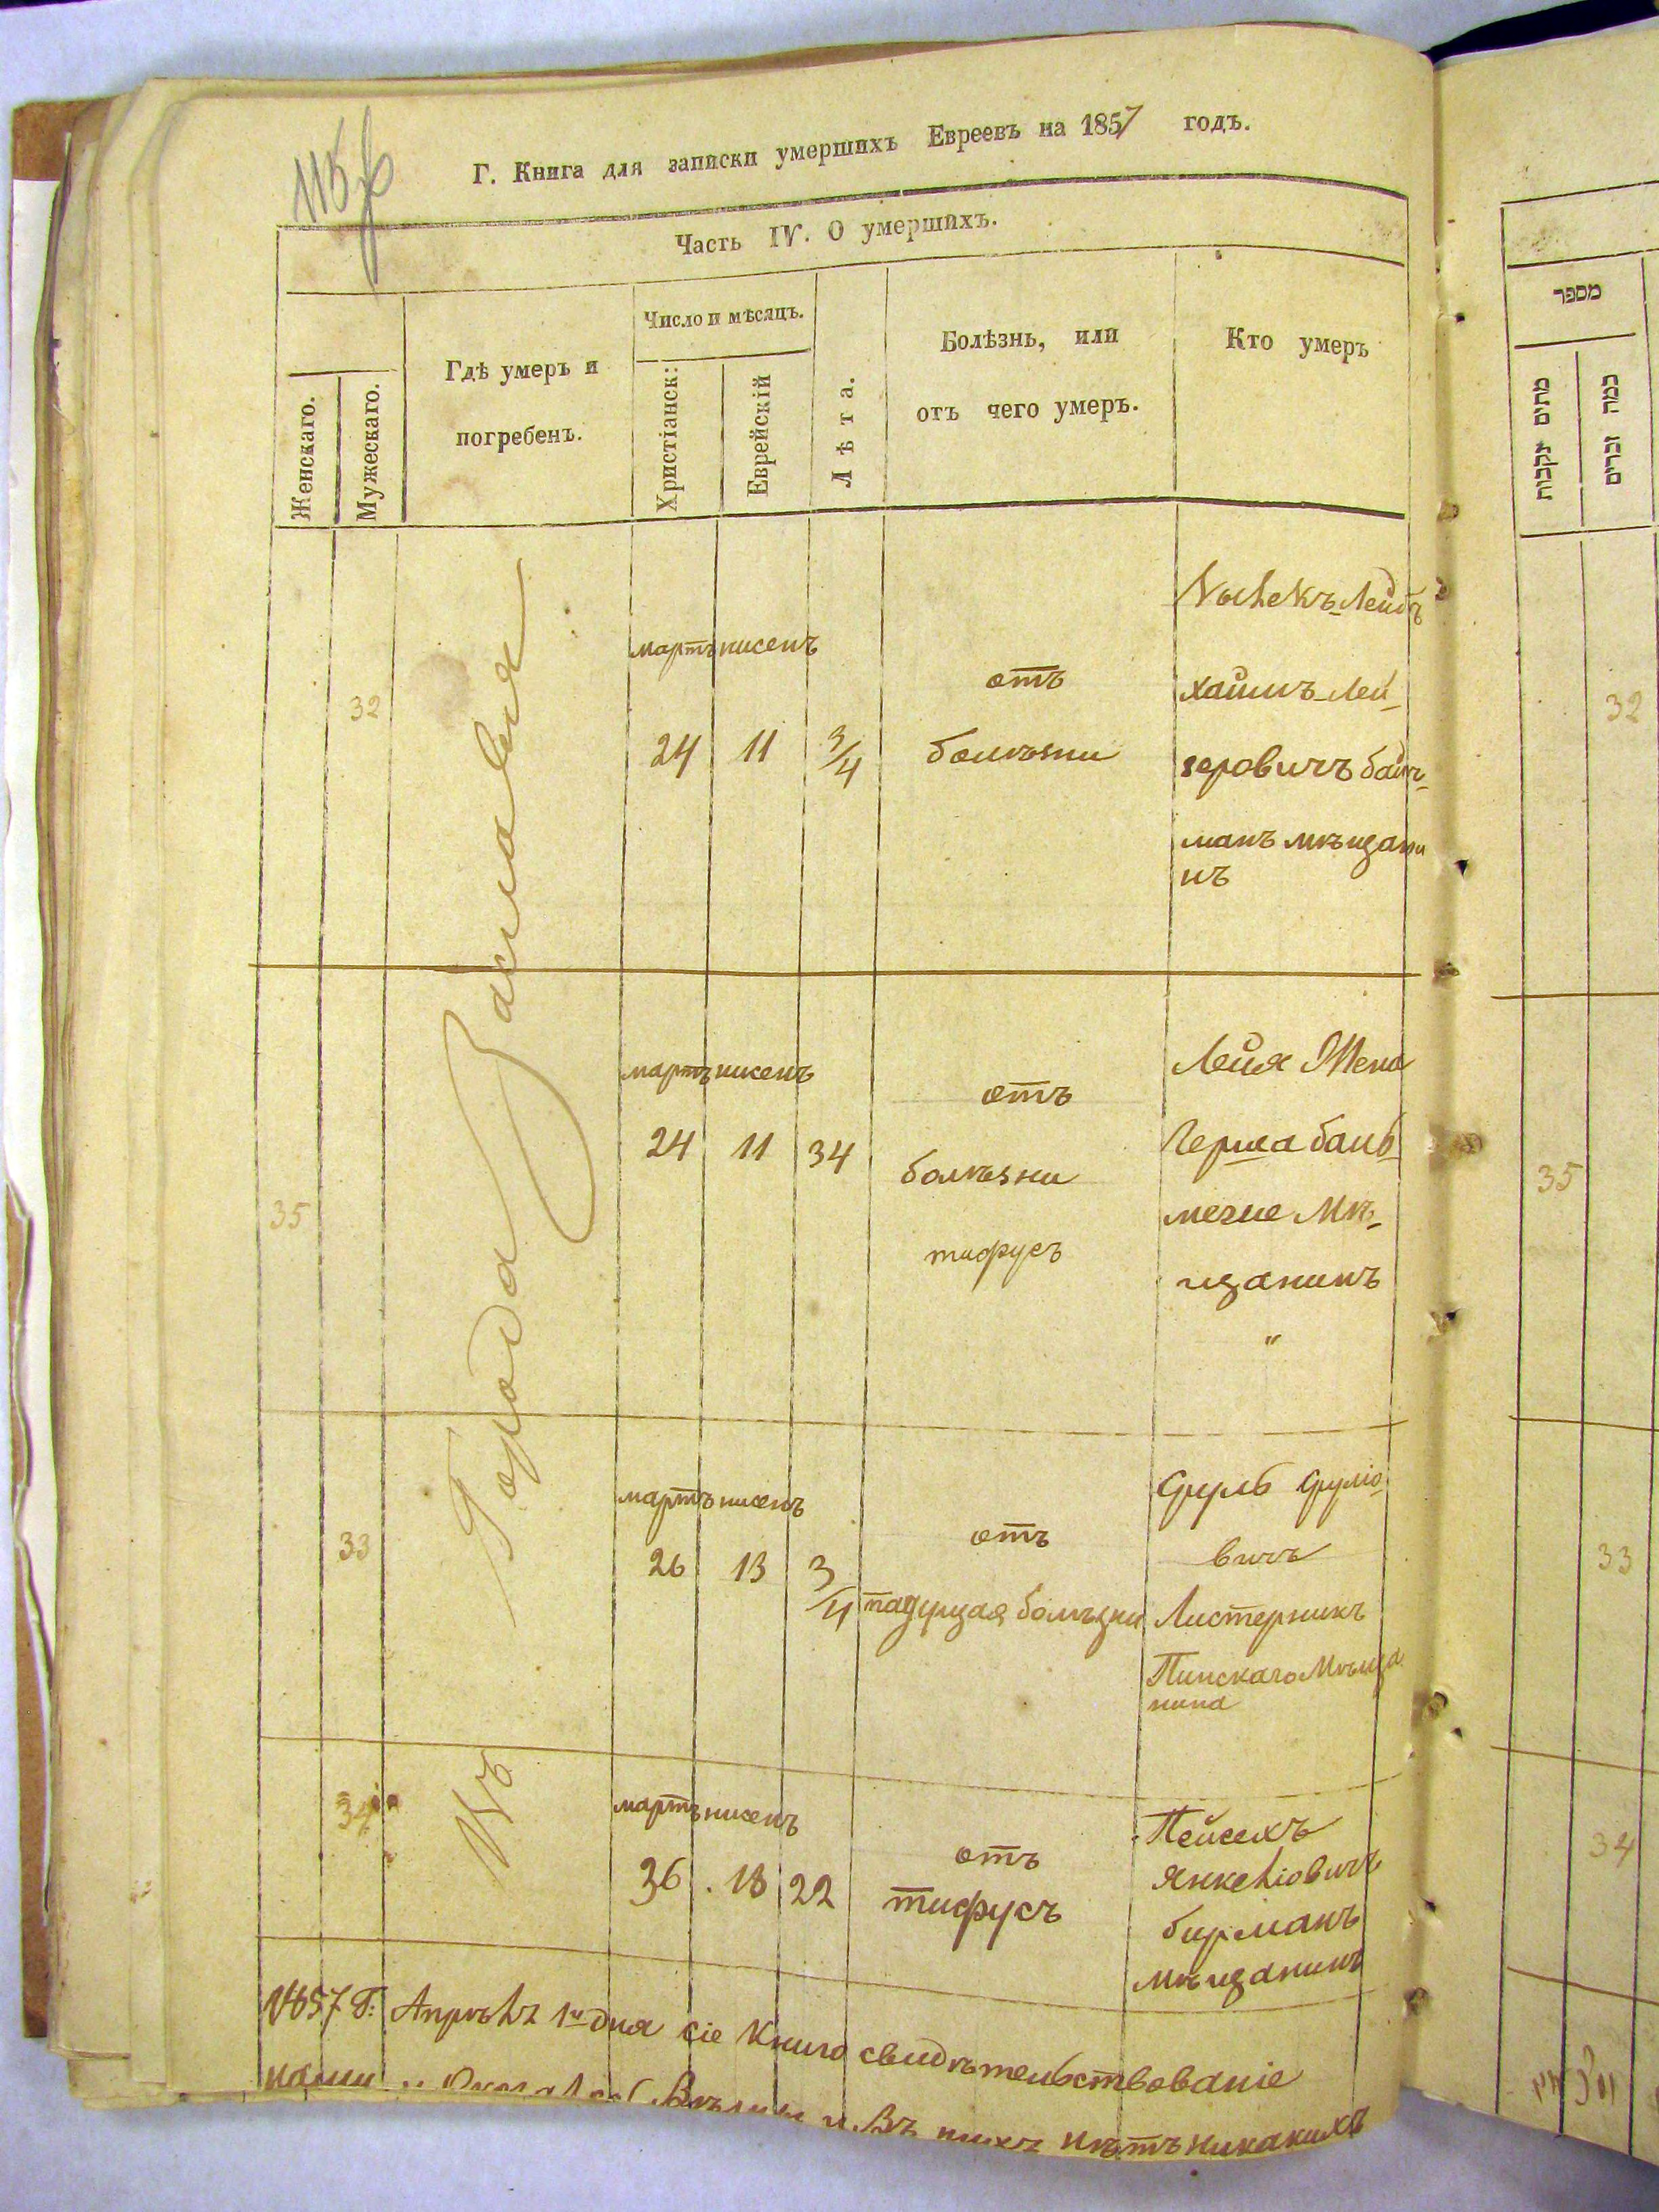 115
Г. Книга для записки умершихъ Евреевъ на 1857 годъ.
Часть IV. О умершихъ.
Женскаго.
Мужескаго.
Гдѣ умеръ и
погребенъ.
Число и мѣсяцъ.
Христіанск:
Еврейскій
Лѣта.
Болѣзнь, или
отъ чего умеръ.
Кто умеръ
Въ Города Заславля
32
мартъ нисенъ
24 11 3/4
отъ
болѣзни
Лейбъ
хаимъ Лей-
зеровичъ
манъ мѣщани
нъ
35
мартъ нисенъ
24 11 34
отъ
болѣзни
тифусъ
Лейя Жена
Герша
Мѣ-
щанинъ
"
33
мартъ нисенъ
26 13 3/4
отъ
падущая болѣзни
Сруль Срулio
вичъ
Листерникъ
Пинскаго Мѣща
нина
34
мартъ нисенъ
36 13 22
отъ
тифусъ
Пейсехъ
Янкеліовичъ
бирманъ
мѣщанинъ
1857 Г: Апрѣля 1го дня сіе Книга свидѣтельствованіе
нами
и въ нихъ нѣтъ никакихъ
מספר
מתים נקבות
כמה זכרים
32
35
33
34